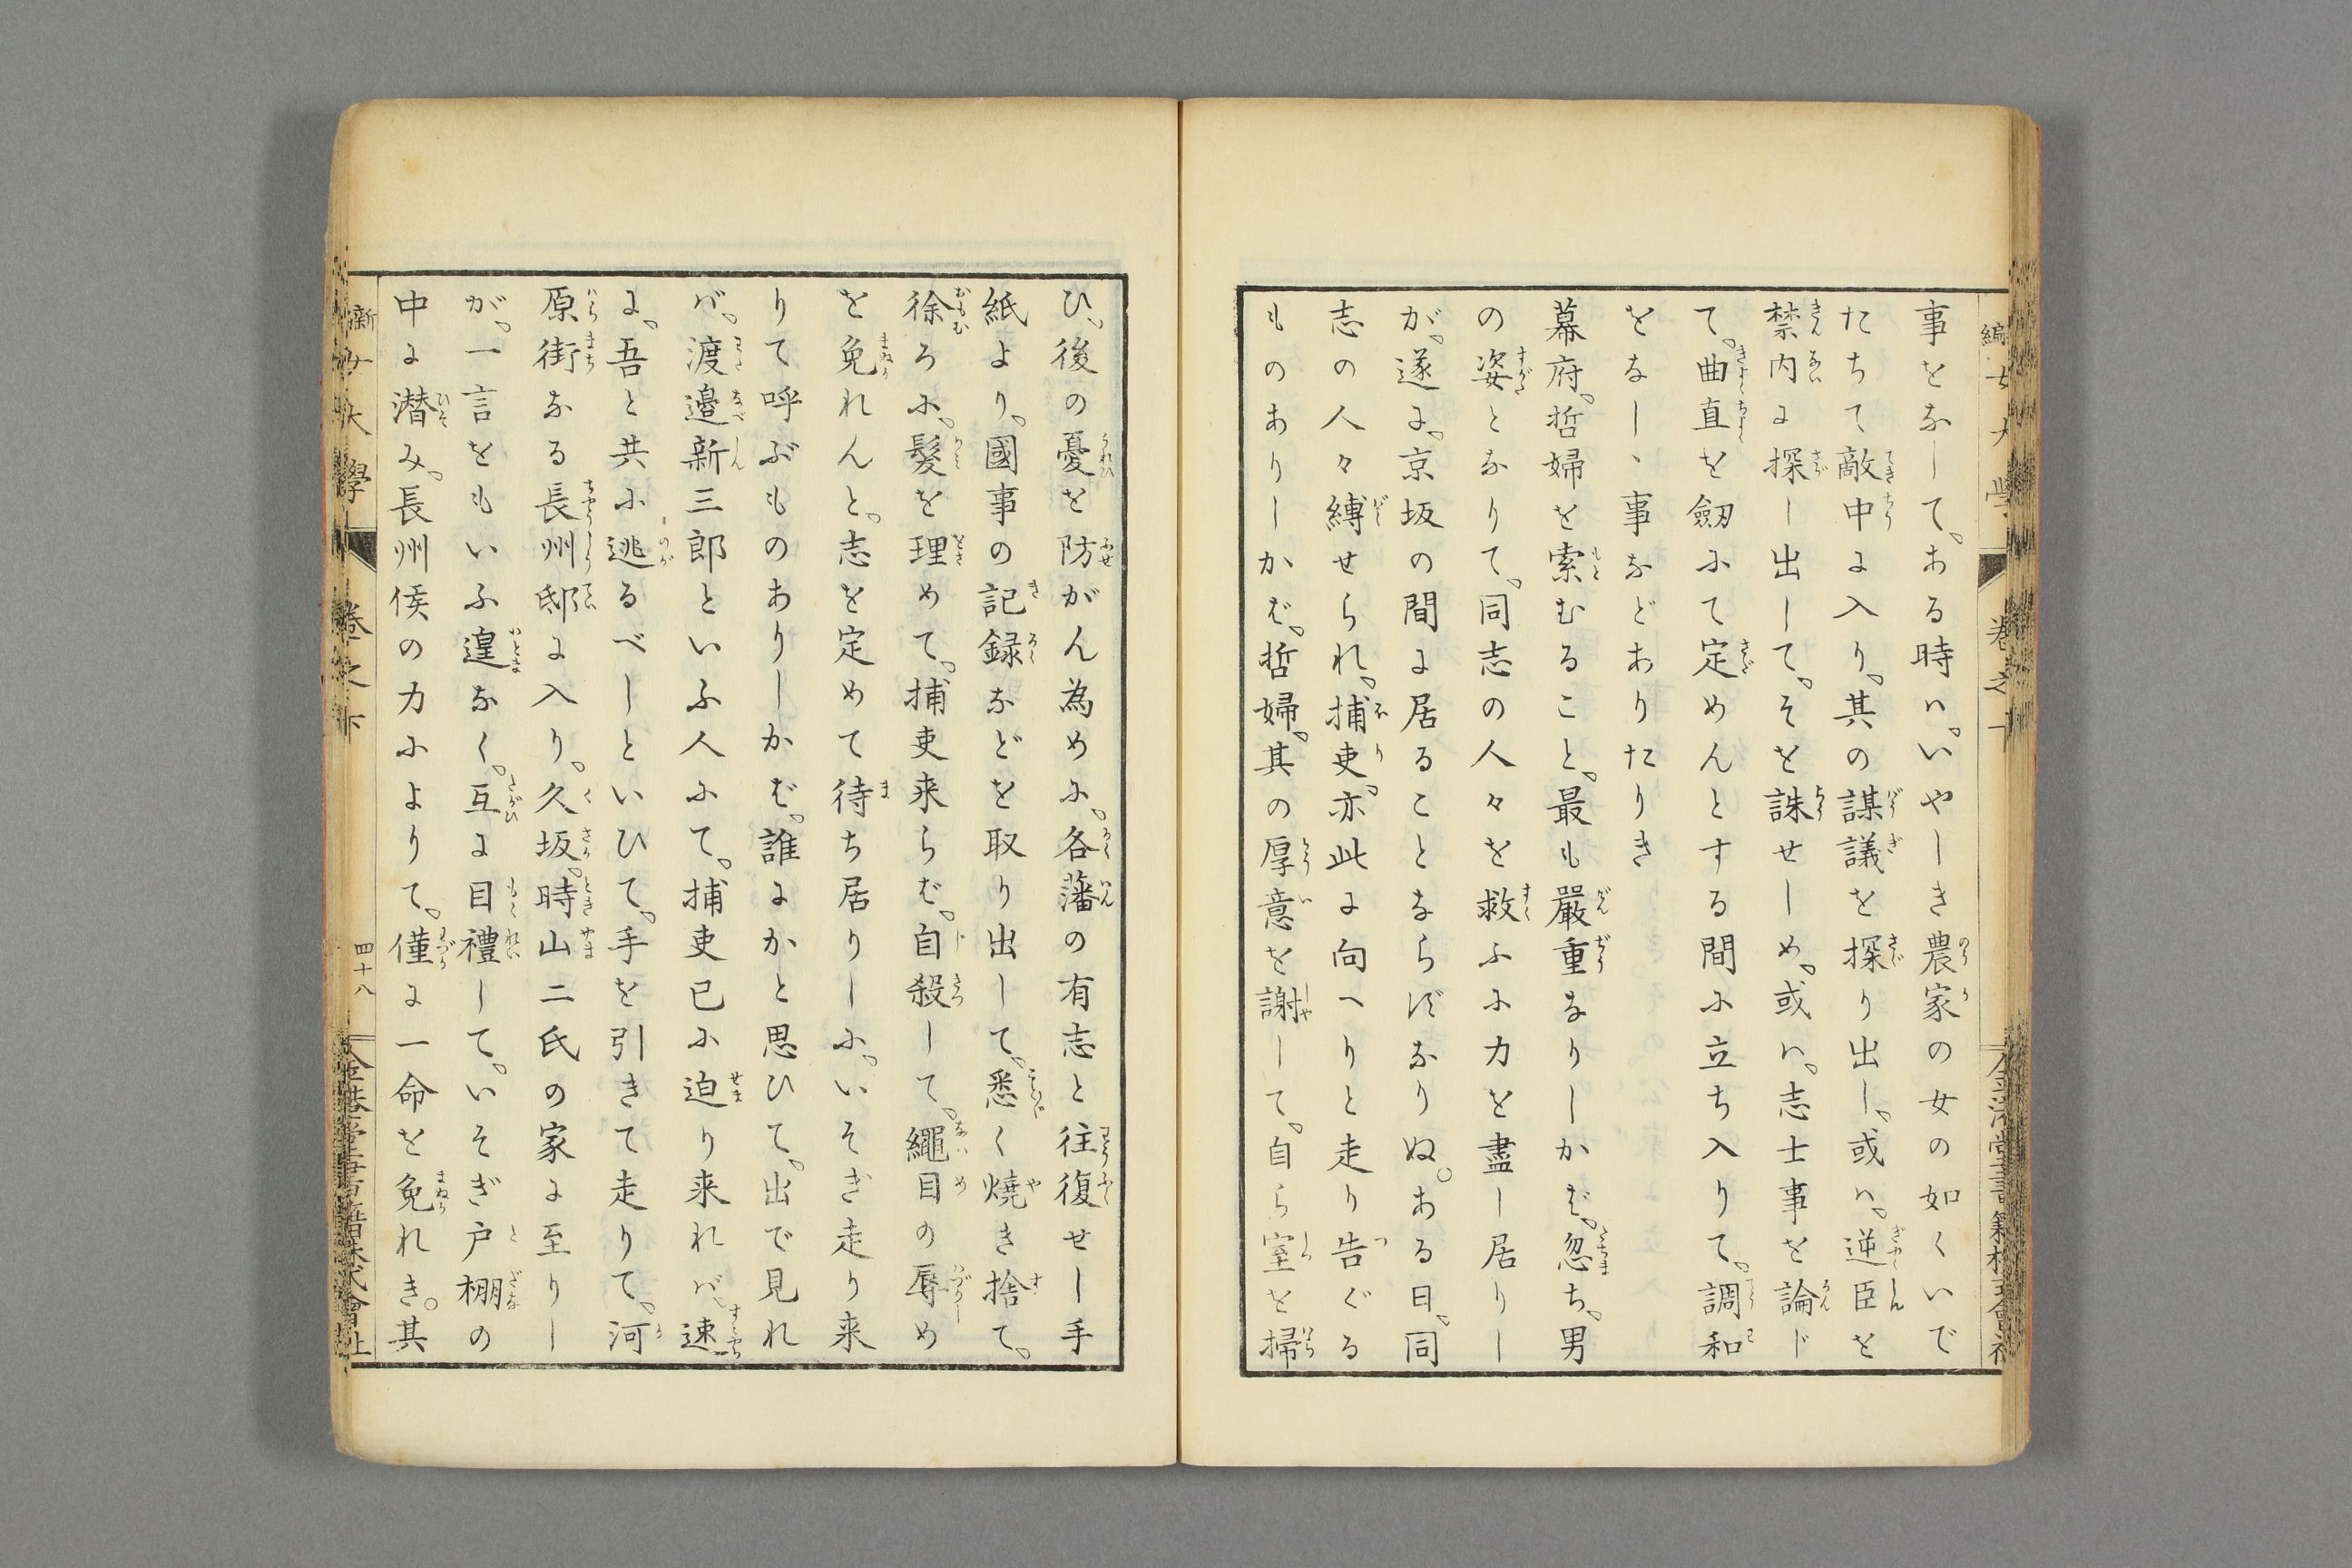 事をなして、ある時ハ、いやしき農家の女の如くいで
たちて敵中に入り、其の謀議を探り出し、或ハ、逆臣を
禁内に探し出して、そを誅せしめ、或ハ、志士事を論ド
て、曲直を劔にて定めんとする間に立ち入りて、調和
をなしゝ事などありたりき
幕府、哲婦を索むること、最も嚴重なりしかば、忽ち、男
の姿となりて、同志の人々を救ふに力を盡し居りし
が、遂に、京坂の間に居ることならずなりぬ。ある日、同
志の人々縛せられ、捕吏、亦此に向へりと走り告ぐる
ものありしかば、哲婦、其の厚意を謝して、自ら室を掃
ひ、後の憂を防がん為めに、各藩の有志と往復せし手
紙より、國事の記録などを取り出して、悉く燒き捨て、
徐ろに、髮を理めて、捕吏来らば、自殺して、繩目の辱め
を免れんと、志を定めて待ち居りしに、いそぎ走り来
りて呼ぶものありしかば、誰にかと思ひて、出で見れ
バ、渡邉新三郎といふ人にて、捕吏已に迫り来れバ、速
に、吾と共に逃るべしといひて、手を引きて走りて、河
原街なる長州邸に入り、久坂、時山二氏の家に至りし
が、一言をもいふ遑なく、互に目禮して、いそぎ戸棚の
中に潜み、長州侯の力によりて、僅に一命を免れき。其
新 女大學 卷之下 四十八 金港堂書籍株式會社